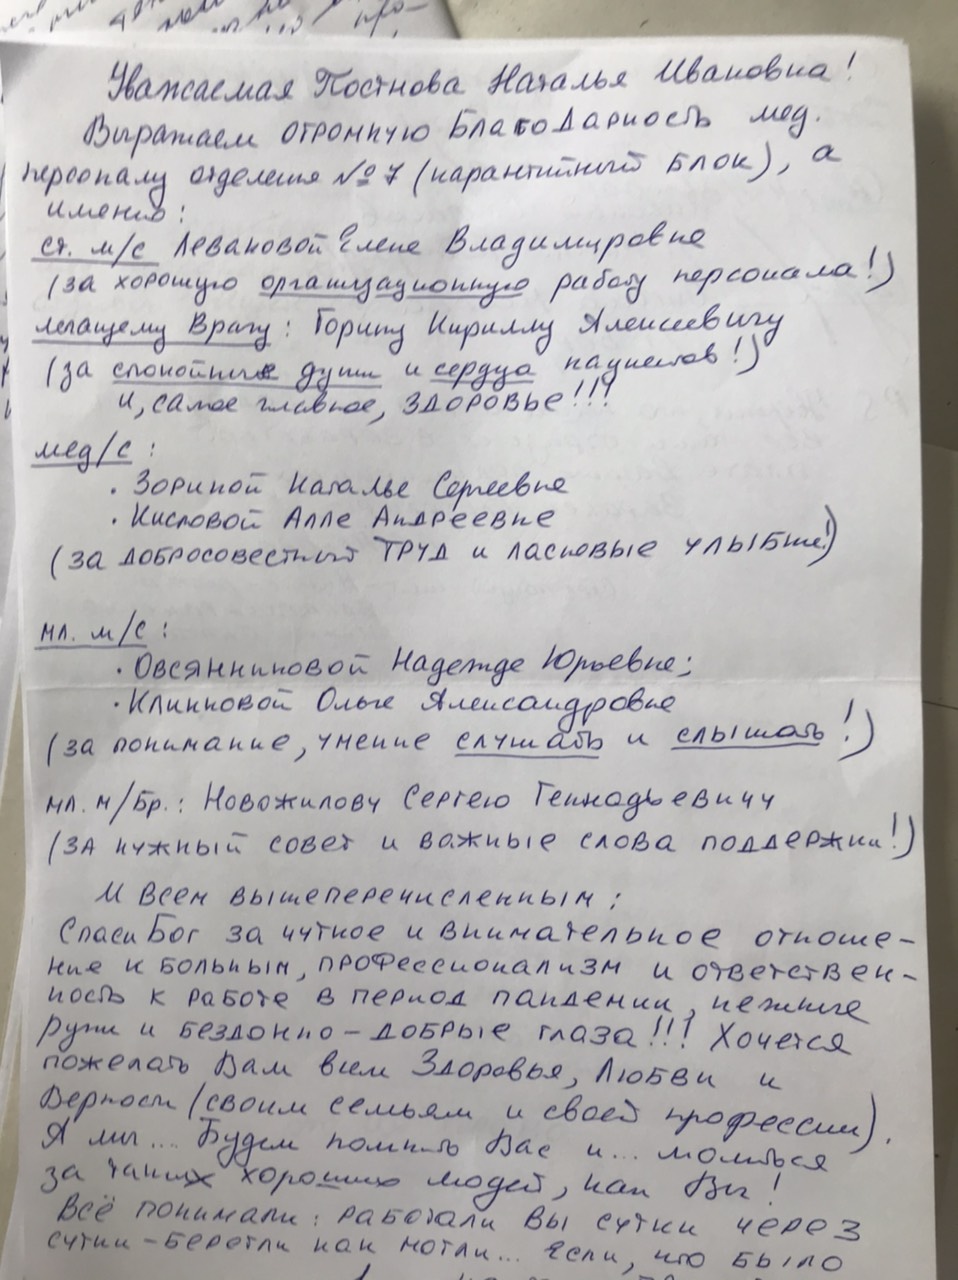 Уважаемая Постнова Наталья Ивановна!
Выражаем огромную Благодарность мед.
персоналу отделения №7 (карантийный блок), а
именно:
ст. м/с Левановой Елене Владимировне
(за хорошую организационную работу персонала!)
лечащему Врачу: Горину Кириллу Алексеевичу
(за спокойные души и сердца пациентов!)
и, самое главное, ЗДОРОВЬЕ!!!
мед/с:
· Зориной Наталье Сергеевне
· Кисловой Алле Андреевне
(за добросовестный ТРУД и ласковые улыбки!)
мл. м/с:
· Овсянниковой Надежде Юрьевне;
· Клинковой Ольге Александровне
(за понимание, умение слушать и слышать!)
мл. м/бр.: Новожилову Сергею Геннадьевичу
(за нужный совет и важные слова поддержки!)
И всем вышеперечисленным:
Спаси Бог за чуткое и внимательное отноше-
ние к больным, профессионализм и ответствен-
ность к работе в период пандемии, нежные
руки и бездонно-добрые глаза!!! Хочется
пожелать Вам всем Здоровья, Любви и
Верности (своим семьям и своей профессии).
А мы... Будем помнить Вас и... молиться
за таких хороших людей, как Вы!
Всё понимали: работали Вы сутки через
сутки-берегли как могли... Если, что было